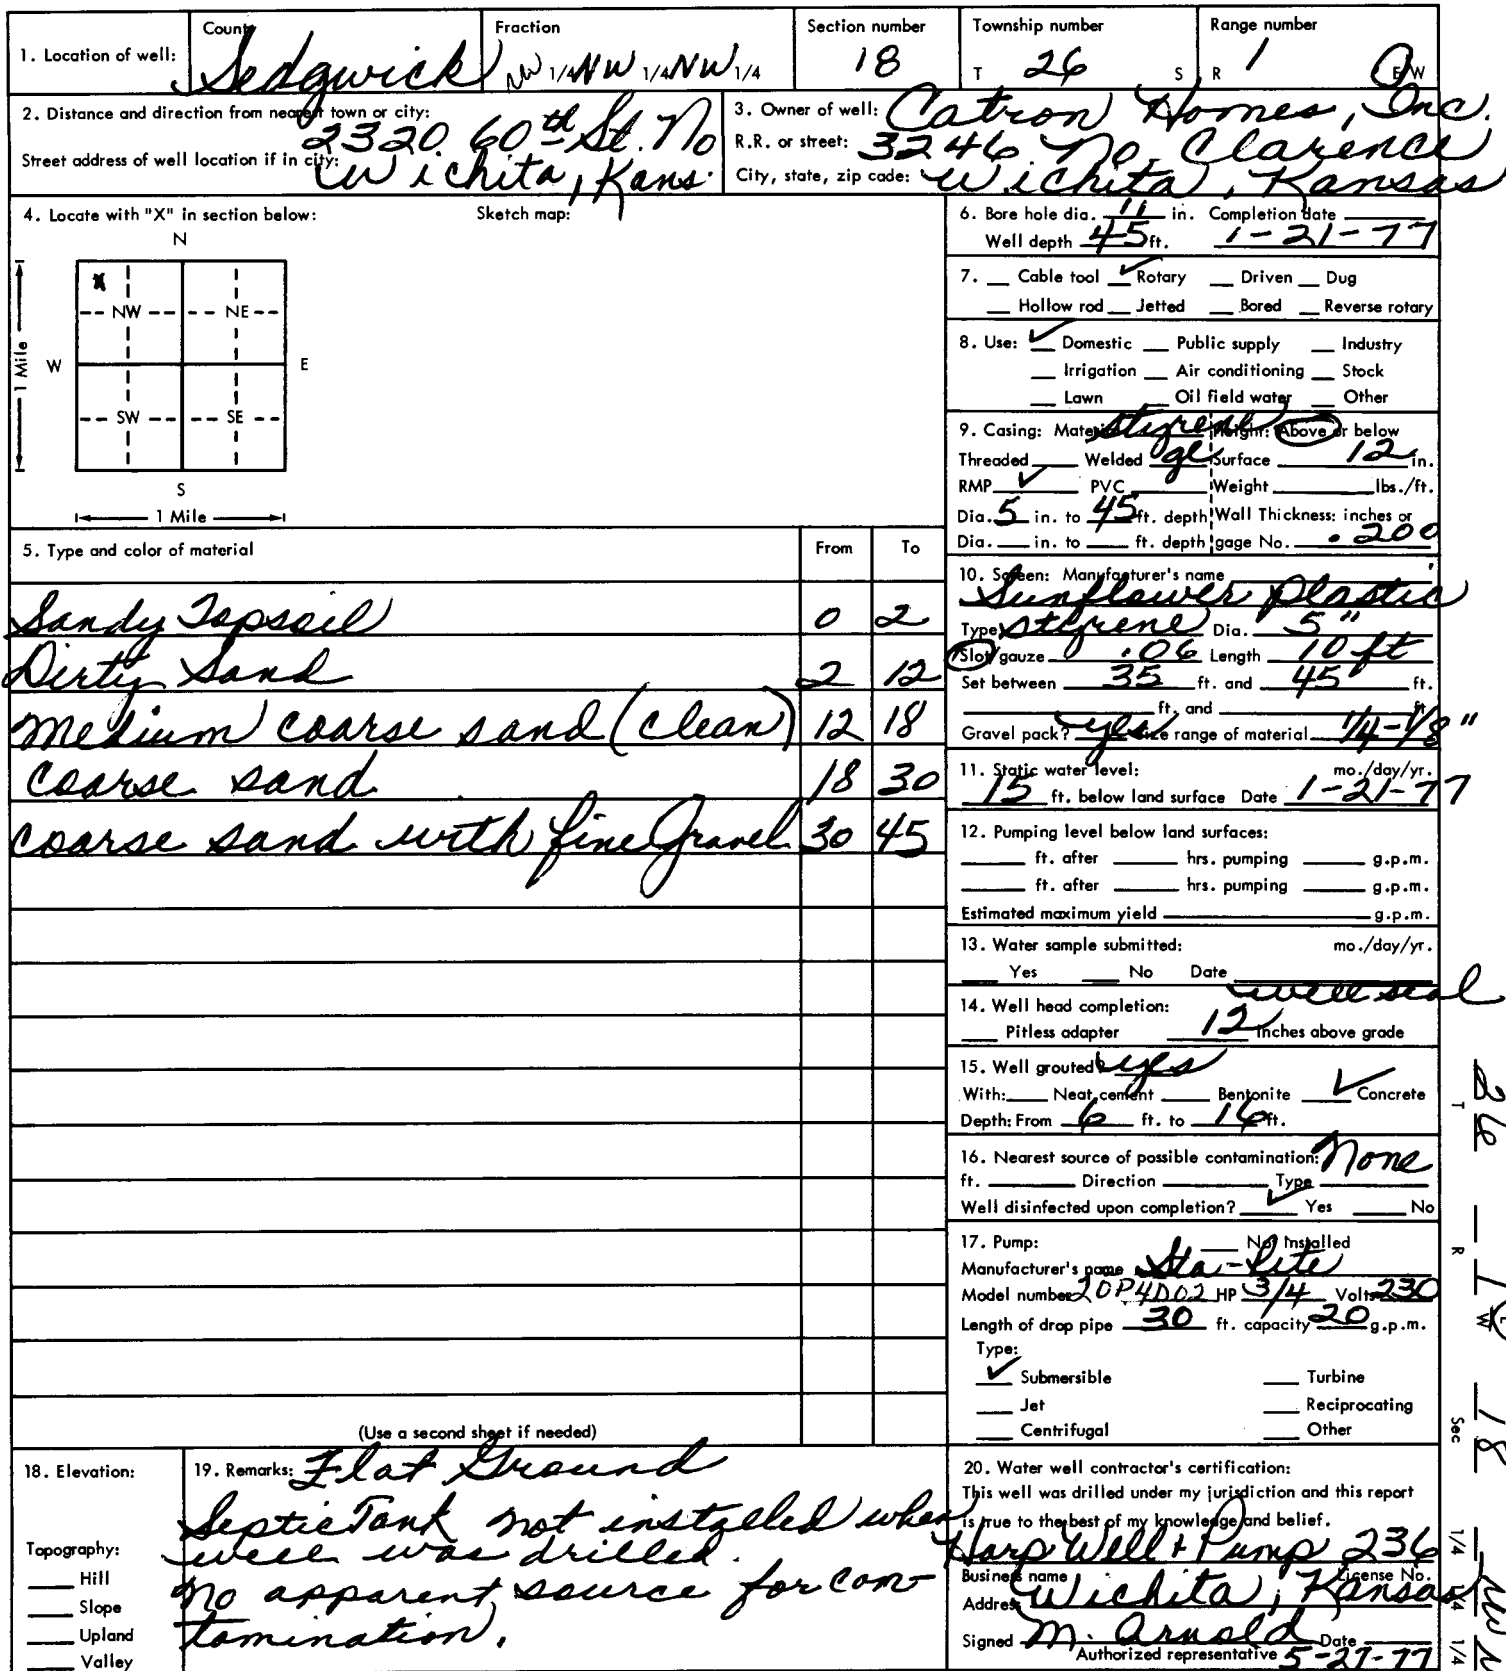 1. Location of well: County Sedgwick Fraction NW 1/4 NW 1/4 NW 1/4 Section number 18 Township number T 26 S Range number R 1 E W
2. Distance and direction from nearest town or city: 2320 60th St. No
Street address of well location if in city: Wichita, Kans.
3. Owner of well: Catron Homes, Inc.
R.R. or street: 3246 No. Clarence
City, state, zip code: Wichita, Kansas
4. Locate with "X" in section below: Sketch map:
N
X
NW NE
W E
1 Mile
SW SE
S
1 Mile
5. Type and color of material From To
Sandy Topsoil 0 2
Dirty Sand 2 12
Medium coarse sand (clean) 12 18
coarse sand 18 30
coarse sand with fine Gravel 30 45
(Use a second sheet if needed)
6. Bore hole dia. 11 in. Completion date
Well depth 45 ft. 1-21-77
7. Cable tool ✓ Rotary Driven Dug
Hollow rod Jetted Bored Reverse rotary
8. Use: ✓ Domestic Public supply Industry
Irrigation Air conditioning Stock
Lawn Oil field water Other
9. Casing: Material styrene Height: Above or below
Threaded Welded Surface 12 in.
RMP ✓ PVC Weight lbs./ft.
Dia. 5 in. to 45 ft. depth Wall Thickness: inches or
Dia. in. to ft. depth gage No. .200
10. Screen: Manufacturer's name
Sunflower Plastic
Type styrene Dia. 5"
Slot/gauze .06 Length 10 ft
Set between 35 ft. and 45 ft.
ft. and ft.
Gravel pack? yes Size range of material 1/4-1/8"
11. Static water level: mo./day/yr.
15 ft. below land surface Date 1-21-77
12. Pumping level below land surfaces:
ft. after hrs. pumping g.p.m.
ft. after hrs. pumping g.p.m.
Estimated maximum yield g.p.m.
13. Water sample submitted: mo./day/yr.
Yes No Date
well seal
14. Well head completion:
Pitless adapter 12 Inches above grade
15. Well grouted? yes
With: Neat cement Bentonite ✓ Concrete
Depth: From 6 ft. to 16 ft.
16. Nearest source of possible contamination: None
ft. Direction Type
Well disinfected upon completion? ✓ Yes No
17. Pump: Not installed
Manufacturer's name Sta-Rite
Model number 20P4D02 HP 3/4 Volts 230
Length of drop pipe 30 ft. capacity 20 g.p.m.
Type:
✓ Submersible Turbine
Jet Reciprocating
Centrifugal Other
18. Elevation:
Topography:
Hill
Slope
Upland
Valley
19. Remarks: Flat Ground
Septic Tank not installed when
well was drilled.
No apparent source for con-
tamination.
20. Water well contractor's certification:
This well was drilled under my jurisdiction and this report
is true to the best of my knowledge and belief.
Harp Well + Pump 236
Business name License No.
Address Wichita, Kansas
Signed M. Arnold Date
Authorized representative 5-27-77
T 26 R 1 W Sec 18 1/4 1/4 1/4